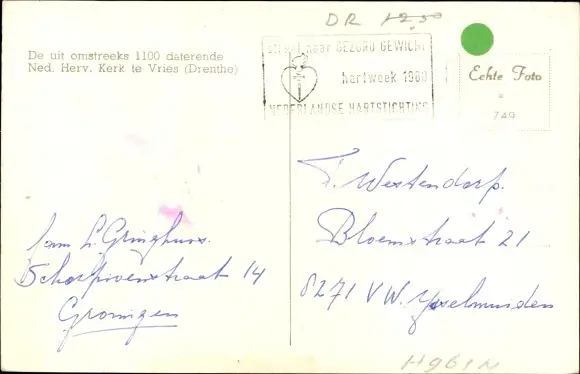 De uit omstreeks 1100 daterende
Ned. Herv. Kerk te Vries (Drenthe)
DR 12.50
streef naar GEZOND GEWICHT
hartweek 1980
NEDERLANDSE HARTSTICHTING
Echte Foto
749
fam L. Gringhuis.
14
Groningen
F. Westendorp.
Bloemstraat 21
8271 VW. Ysselmuiden
H961N